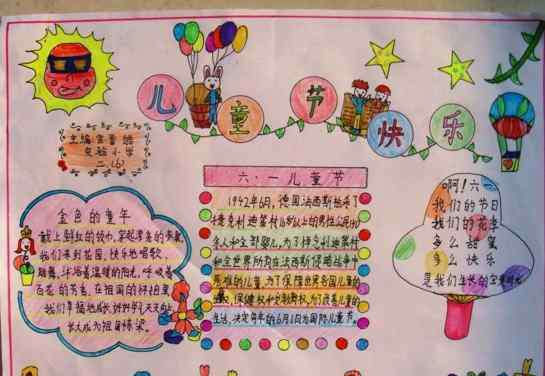 儿童节快乐
主编
实验小学
二.(6)
六·一儿童节
1942年6月,德国法西斯枪杀了
捷克利迪策村16岁以上的男性公民140
余人和全部婴儿,为了悼念利迪策村
和全世界所有在法西斯侵略战争中
死难的儿童,为了保障世界各国儿童的
保健权和受教育权,为了改善儿童的
生活,决定每年的6月1日为国际儿童节
金色的童年
戴上鲜红的领巾,穿起漂亮的
我们来到花园,快乐地唱歌
跳舞,沐浴着温暖的阳光,呼吸着
百花的芳香,在祖国的怀抱里
我们幸福地成长,好好学习天天向上
长大成为祖国栋梁。
啊!六一
我们的节日
我们的花季
多么甜蜜
多么快乐
是我们成长的